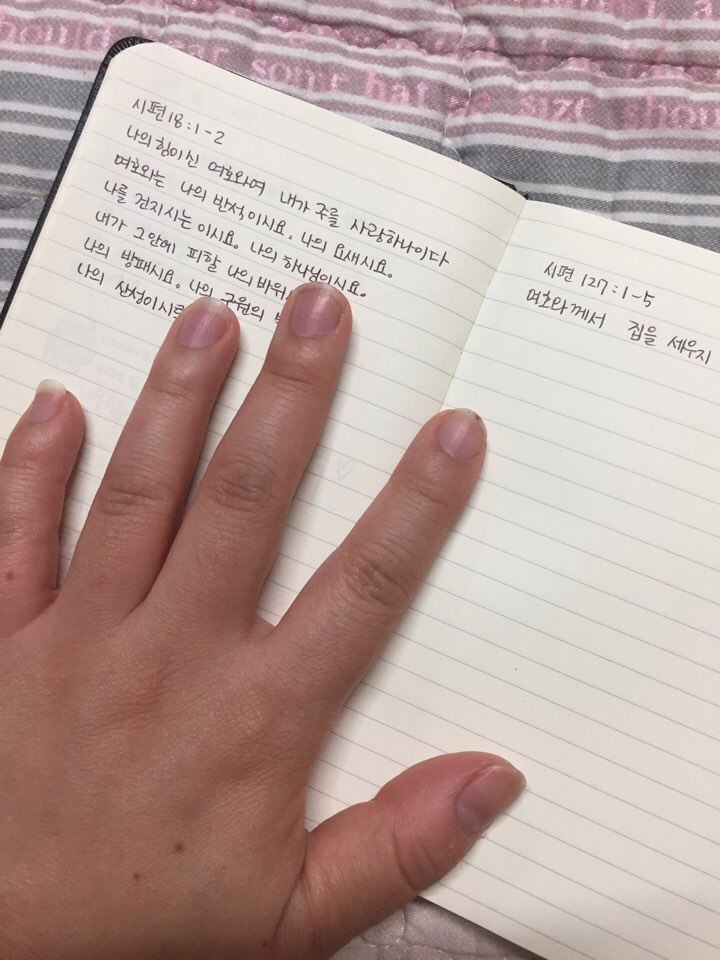 should
some hat
size
shou
시편 18:1-2
나의 힘이신 여호와여 내가 주를 사랑하나이다
여호와는 나의 반석이시요. 나의 요새시요.
나를 건지시는 이시요. 나의 하나님이시요.
내가 그안에 피할 나의 바위
나의 방패시요. 나의 구원의
나의 산성이시
시편 127:1-5
여호와께서 집을 세우지